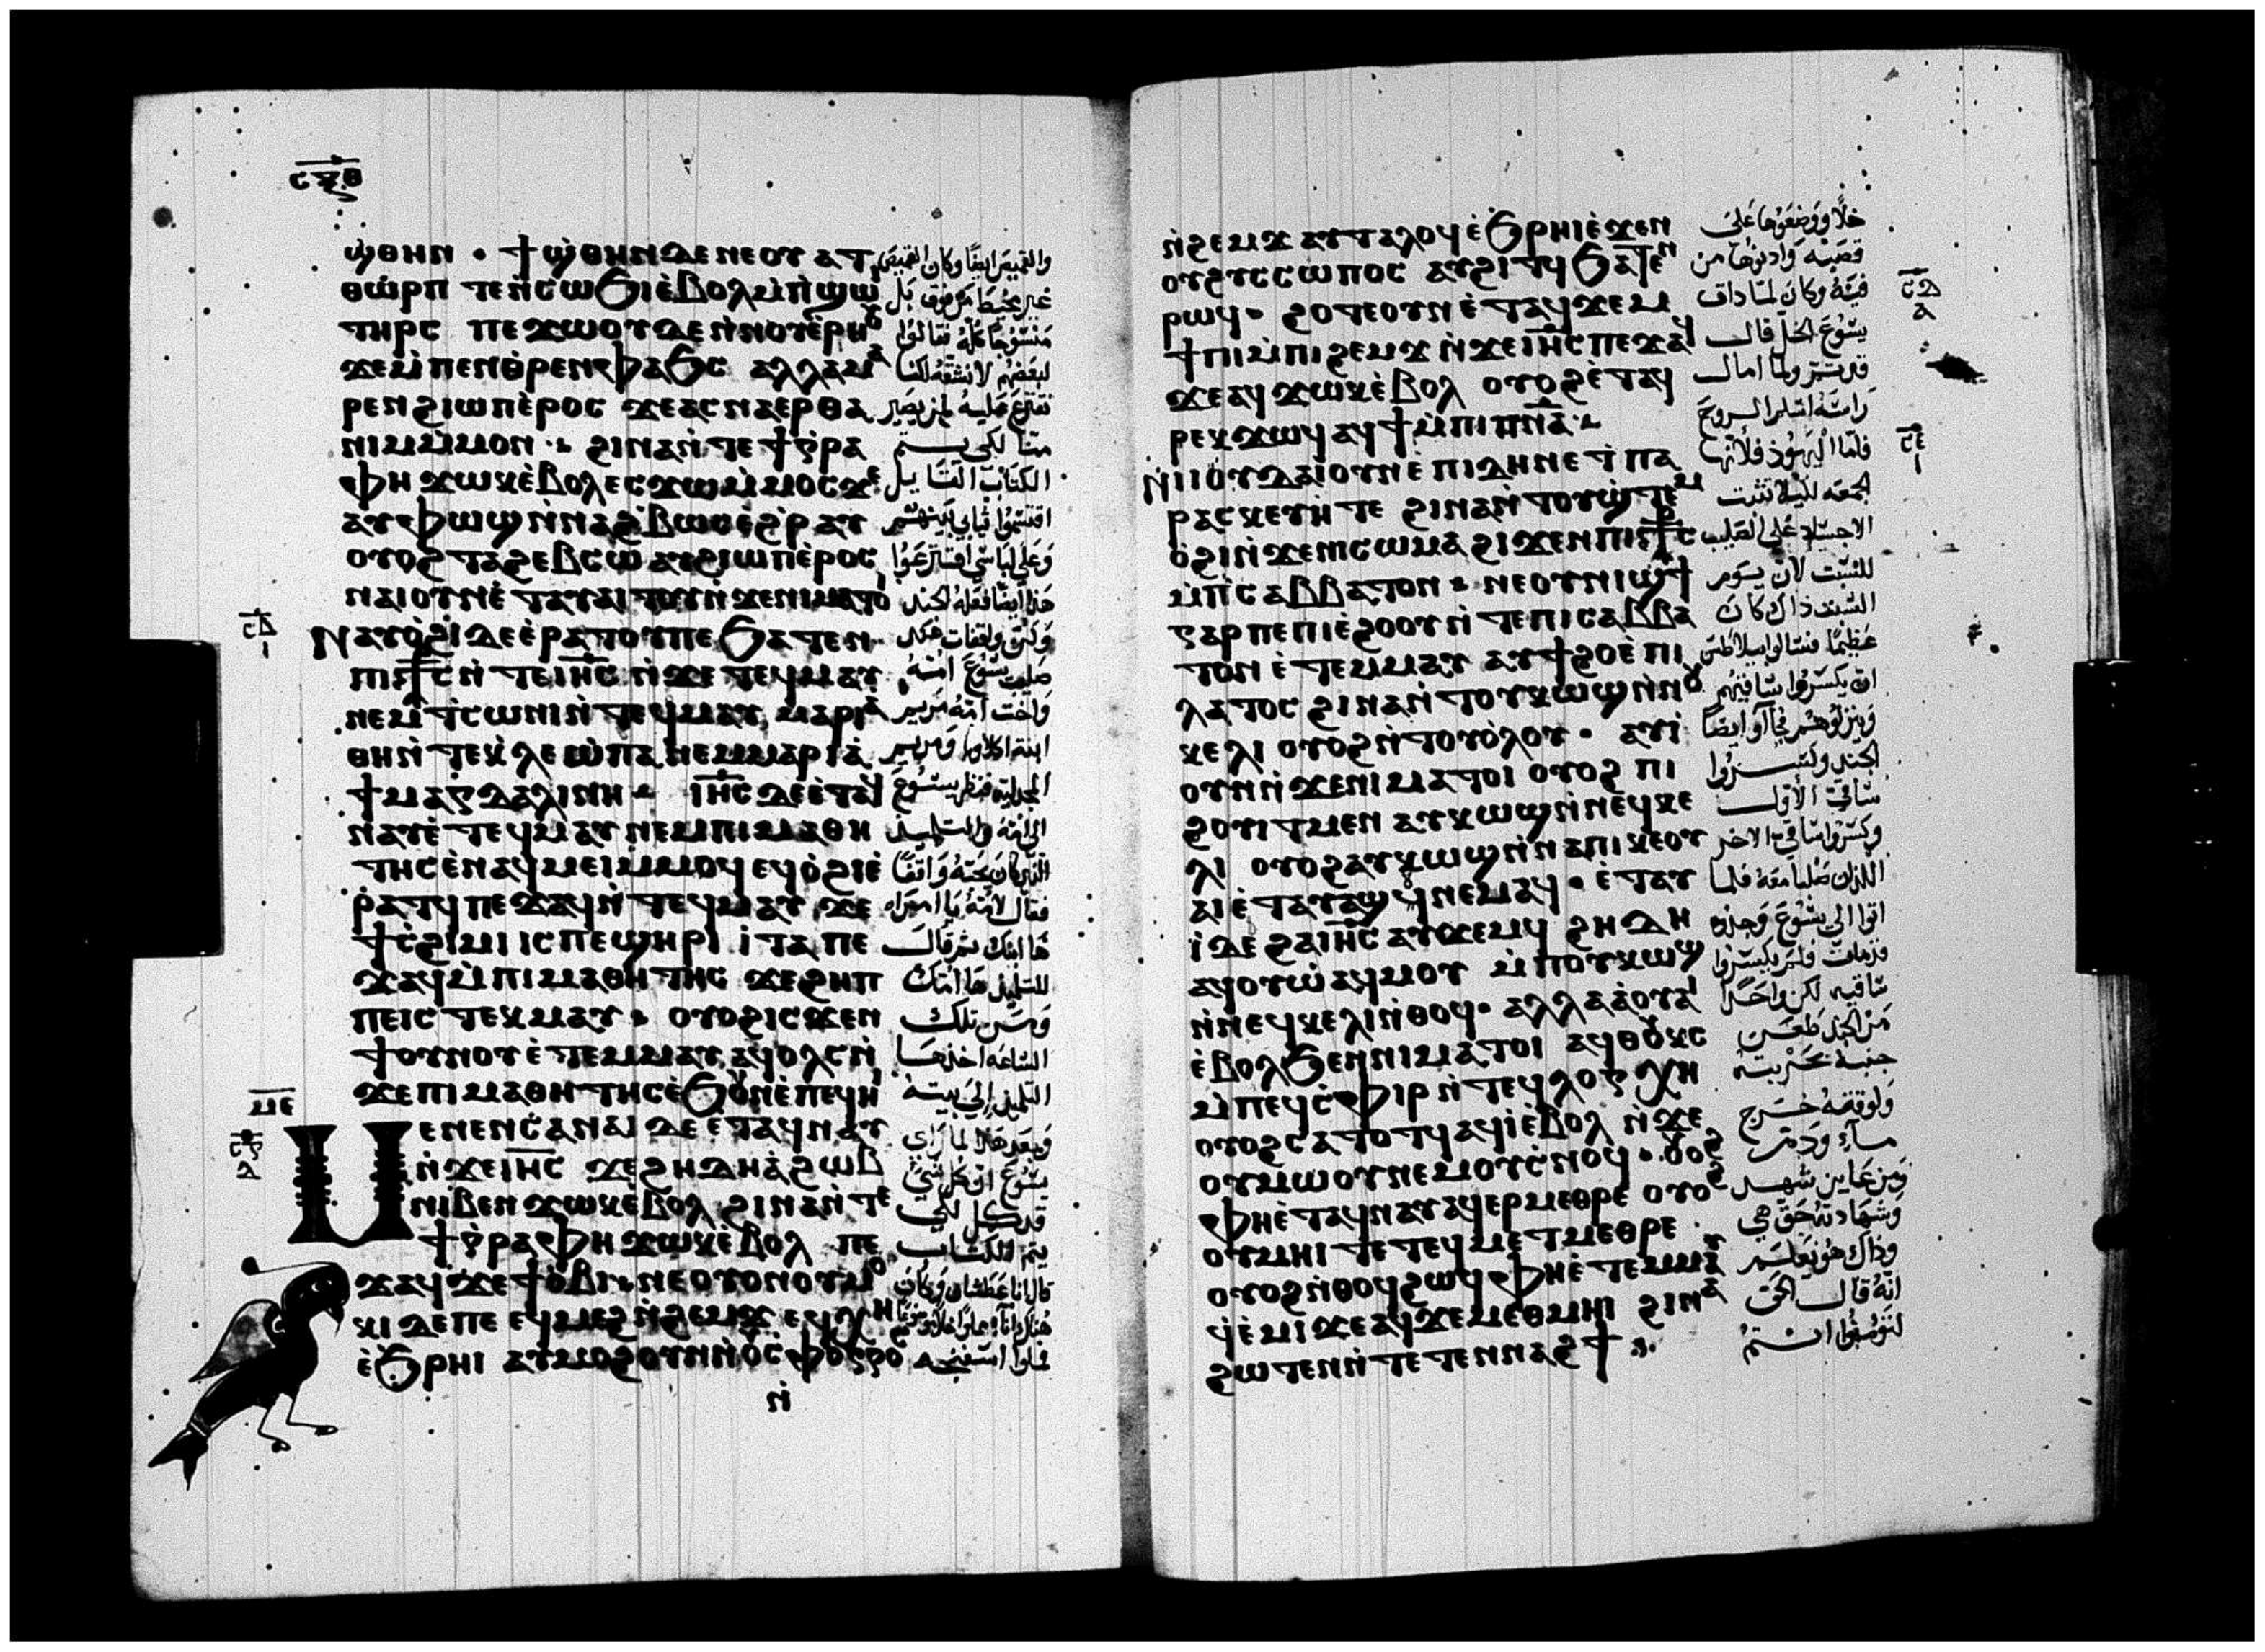 ⲥⲝⲑ
ϣⲑⲏⲛ · ϯϣⲑⲏⲛ ⲇⲉ ⲛⲉⲟⲩ ⲁⲧ
ⲑⲱⲣⲡ ⲧⲉ ⲛ̀ⲥⲱϧⲓ ⲉ̀ⲃⲟⲗ ⲙ̀ⲡϣⲱ
ⲧⲏⲣⲥ ⲡⲉϫⲱⲟⲩ ⲇⲉ ⲛ̀ⲛⲟⲩⲉ̀ⲣⲏⲟⲩ
ϫⲉ ⲙ̀ⲡⲉⲛⲑ̀ⲣⲉⲛⲫⲁϧⲥ ⲁⲗⲗⲁ ⲙⲁ
ⲣⲉⲛϩⲓⲱⲡ ⲉ̀ⲣⲟⲥ ϫⲉ ⲁⲥⲛⲁⲉⲣ ⲑⲁ
ⲛⲓⲙ ⲙ̀ⲙⲟⲛ ϩⲓⲛⲁ ⲛ̀ⲧⲉ ϯⲅ̀ⲣⲁ
ⲫⲏ ϫⲱⲕ ⲉ̀ⲃⲟⲗ ⲉⲥϫⲱ ⲙ̀ⲙⲟⲥ ϫⲉ
ⲁⲩⲫⲱϣ ⲛ̀ⲛⲁϩ̀ⲃⲱⲥ ⲉ̀ϩ̀ⲣⲁⲩ
ⲟⲩⲟϩ ⲧⲁϩⲉⲃⲥⲱ ⲁⲩϩⲓⲱⲡ ⲉ̀ⲣⲟⲥ
ⲛⲁⲓ ⲟⲩⲛ ⲉ̀ⲧⲁⲩⲁⲓⲧⲟⲩ ⲛ̀ϫⲉ ⲛⲓⲙⲁⲧⲟⲓ
ⲛⲁⲩⲟ̀ϩⲓ ⲇⲉ ⲉ̀ⲣⲁⲧⲟⲩ ⲡⲉ ϧⲁⲧⲉⲛ
ⲡⲓⲥ̅ⲧ̅ⲥ̅ ⲛ̀ⲧⲉ ⲓⲏ̅ⲥ̅ ⲛ̀ϫⲉ ⲧⲉϥⲙⲁⲩ
ⲛⲉⲙ ⲧ̀ⲥⲱⲛⲓ ⲛ̀ⲧⲉϥⲙⲁⲩ ⲙⲁⲣⲓⲁ
ⲑⲏ ⲛ̀ⲧⲉ ⲕ̀ⲗⲉⲱ̀ⲡⲁ ⲛⲉⲙ ⲙⲁⲣⲓⲁ̀
ϯⲙⲁⲅⲇⲁⲗⲓⲛⲏ ⲓⲏ̅ⲥ̅ ⲇⲉ ⲉ̀ⲧⲁϥ
ⲛⲁⲩ ⲉ̀ⲧⲉϥⲙⲁⲩ ⲛⲉⲙ ⲡⲓⲙⲁⲑⲏ
ⲧⲏⲥ ⲉ̀ⲛⲁϥⲙⲉⲓ ⲙ̀ⲙⲟϥ ⲉϥⲟ̀ϩⲓ ⲉ̀
ⲣⲁⲧϥ ⲡⲉϫⲁϥ ⲛ̀ⲧⲉϥⲙⲁⲩ ϫⲉ
ϯⲥ̀ϩⲓⲙⲓ ⲓⲥ ⲡⲉϣⲏⲣⲓ ⲓ̀ⲧⲁ ⲡⲉ
ϫⲁϥ ⲙ̀ⲡⲓⲙⲁⲑⲏⲧⲏⲥ ϫⲉ ϩⲏⲡ
ⲡⲉ ⲓⲥ ⲧⲉⲕⲙⲁⲩ ⲟⲩⲟϩ ⲓⲥϫⲉⲛ
ϯⲟⲩⲛⲟⲩ ⲉ̀ⲧⲉⲙⲙⲁⲩ ⲁϥⲟⲗⲥ ⲛ̀
ϫⲉ ⲡⲓⲙⲁⲑⲏⲧⲏⲥ ⲉ̀ϧⲟⲩⲛ ⲉ̀ⲡⲉϥⲏⲓ
ⲙⲉ
ⲙⲉⲛⲉⲛⲥ̀ⲁ ⲛⲁⲓ ⲇⲉ ⲉ̀ⲧⲁϥⲛⲁⲩ
ⲛ̀ϫⲉ ⲓⲏ̅ⲥ̅ ϫⲉ ϩⲏⲇⲏ ⲁ̀ ϩⲱⲃ
ⲛⲓⲃⲉⲛ ϫⲱⲕ ⲉⲃⲟⲗ ϩⲓⲛⲁ ⲛ̀ⲧⲉ
ϯⲅ̀ⲣⲁⲫⲏ ϫⲱⲕ ⲉ̀ⲃⲟⲗ ⲡⲉ
ϫⲁϥ ϫⲉ ϯⲟ̀ⲃⲓ ⲛⲉ ⲟⲩⲟⲛ ⲟⲩⲙⲟ
ⲕⲓ ⲇⲉ ⲡⲉ ⲉϥⲙⲉϩ ⲛ̀ϩⲉⲙϫ ⲉϥⲭⲏ
ⲉ̀ϧⲣⲏⲓ ⲁⲩⲙⲟϩ ⲟⲩⲛ ⲛ̀ⲟⲩⲥ̀ⲫⲟⲅⲅⲟ
ⲛ̀
والقميص ايضا وكان القميص
غير مخيط من فوق بل
منسوجا كله فقالوا
لبعضهم لا نشقه لكنا
نقترع عليه لمن يصير
متنا لكي يتم
الكتاب القايل
اقتسموا ثيابي بينهم
وعلى لباسي اقترعوا
هذا ايضا فعله الجند
وكن واقفات عند
صليب يسوع امه
واخت امه مريم
ابنة اكلاوبا ومريم
المجدلية فنظر يسوع
الى امه والتلميذ
الذي كان يحبه واقفا
فقال لامه يا امراه
ها ابنك ثم قال
للتلميذ ها امك
ومن تلك
الساعه اخذها
التلميذ الى بيته
وبعد هذا لما راى
يسوع ان كل شي
قد كمل لكي
يتم الكتاب
قال انا عطشان وكان
ملوا اسفنجه
ⲛ̀ϩⲉⲙϫ ⲁⲩⲧⲁⲗⲟϥ ⲉ̀ϧⲣⲏⲓ ⲉ̀ϫⲉⲛ
ⲟⲩϩⲩⲥⲥⲱⲡⲟⲥ ⲁⲩϩⲓⲧϥ ϧⲁⲧⲉⲛ
ⲣⲱϥ ϩⲟⲧⲉ ⲟⲩⲛ ⲉ̀ⲧⲁϥϫⲉⲙ
ϯⲡⲓ ⲙ̀ⲡⲓϩⲉⲙϫ ⲛ̀ϫⲉ ⲓⲏ̅ⲥ̅ ⲡⲉϫⲁϥ
ϫⲉ ⲁϥϫⲱⲕ ⲉ̀ⲃⲟⲗ ⲟⲩⲟϩ ⲉ̀ⲧⲁϥ
ⲣⲉⲕ ϫⲱϥ ⲁϥϯ ⲙ̀ⲡⲓⲡ̅ⲛ̅ⲁ̅
ⲛⲓⲓⲟⲩⲇⲁⲓ ⲟⲩⲛ ⲉ̀ⲡⲓⲇⲏ ⲛⲉ ϯⲡⲁ
ⲣⲁⲥⲕⲉⲩⲏ̀ ⲧⲉ ϩⲓⲛⲁ ⲛ̀ⲧⲟⲩϣ̀ⲧⲉⲙ
ⲟ̀ϩⲓ ⲛ̀ϫⲉ ⲛⲓⲥⲱⲙⲁ ϩⲓϫⲉⲛ ⲡⲓⲥ̅ⲧ̅ⲥ̅
ⲙ̀ⲡⲓⲥⲁⲃⲃⲁⲧⲟⲛ ⲛⲉ ⲟⲩⲛⲓϣϯ
ⲅⲁⲣ ⲡⲉ ⲡⲓⲉ̀ϩⲟⲟⲩ ⲛ̀ⲧⲉ ⲡⲓⲥⲁⲃⲃⲁ
ⲧⲟⲛ ⲉ̀ⲧⲉⲙⲙⲁⲩ ⲁⲩϯϩⲟ ⲉ̀ⲡⲓ
ⲗⲁⲧⲟⲥ ϩⲓⲛⲁ ⲛ̀ⲧⲟⲩⲕⲱϣ ⲛ̀ⲛⲟⲩ
ⲕⲉⲗⲓ ⲟⲩⲟϩ ⲛ̀ⲧⲟⲩⲟ̀ⲗⲟⲩ · ⲁⲩⲓ̀
ⲟⲩⲛ ⲛ̀ϫⲉ ⲛⲓⲙⲁⲧⲟⲓ ⲟⲩⲟϩ ⲡⲓ
ϩⲟⲩⲓⲧ ⲙⲉⲛ ⲁⲩⲕⲱϣ ⲛ̀ⲛⲉϥⲕⲉ
ⲗⲓ ⲟⲩⲟϩ ⲁⲩⲕⲱϣ ⲛ̀ⲛⲁ ⲡⲓⲕⲉⲟⲩ
ⲁⲓ ⲉ̀ⲧⲁⲩⲁϣϥ ⲛⲉⲙⲁϥ · ⲉ̀ⲧⲁⲩ
ⲓ̀ ⲇⲉ ϩⲁ ⲓⲏ̅ⲥ̅ ⲁⲩϫⲉⲙϥ ϩⲏⲇⲏ
ⲁϥⲟⲩⲱ ⲁϥⲙⲟⲩ ⲙ̀ⲡⲟⲩⲕⲱϣ
ⲛ̀ⲛⲉϥⲕⲉⲗⲓ ⲛ̀ⲑⲟϥ · ⲁⲗⲗⲁ ⲁ̀ ⲟⲩⲁⲓ
ⲉ̀ⲃⲟⲗϧⲉⲛ ⲛⲓⲙⲁⲧⲟⲓ ⲁϥⲑⲟⲩⲕⲥ
ⲙ̀ⲡⲉϥⲥ̀ⲫⲓⲣ ⲛ̀ⲧⲉϥⲗⲟⲅⲭⲏ
ⲟⲩⲟϩ ⲥⲁⲧⲟⲧϥ ⲁϥⲓ̀ ⲉ̀ⲃⲟⲗ ⲛ̀ϫⲉ
ⲟⲩⲙⲱⲟⲩ ⲛⲉⲙ ⲟⲩⲥ̀ⲛⲟϥ · ⲟⲩⲟϩ
ⲫⲏ ⲉ̀ⲧⲁϥⲛⲁⲩ ⲁϥⲉⲣⲙⲉⲑⲣⲉ ⲟⲩⲟϩ
ⲟⲩⲙⲏⲓ ⲧⲉ ⲧⲉϥⲙⲉⲧⲙⲉⲑⲣⲉ ·
ⲟⲩⲟϩ ⲛ̀ⲑⲟϥ ϩⲱϥ ⲫⲏ ⲉ̀ⲧⲉⲙⲙⲁⲩ
ϥ̀ⲉ̀ⲙⲓ ϫⲉ ⲁϥϫⲉ ⲙⲉⲑⲙⲏⲓ ϩⲓⲛⲁ
ϩⲱⲧⲉⲛ ⲛ̀ⲧⲉⲧⲉⲛⲛⲁϩϯ
خلا ووضعوها على
قصبة وادنوها من
فيه وكان لما ذاق
يسوع الخل قال
قد تم ولما امال
راسه اسلم الروح
فاما اليهود فلانها
جمعه لكيلا تثبت
الاجساد على الصليب
للسبت لان يوم
السبت ذاك كان
عظيما فسالوا بيلاطس
ان يكسروا ساقيهم
وينزلوهم فجاوا ايضا
الجند وكسروا
ساقي الاول
وكسروا ساقي الاخر
اللذان صلبا معه فلما
اتوا الى يسوع وجدوه
قد مات فلم يكسروا
ساقيه لكن واحدا
من الجند طعن
جنبه بحربته
ولوقته خرج
ماء ودم
ومن عاين شهد
وشهادته حق هي
وذاك هو يعلم
انه قال الحق
لتومنوا انتم